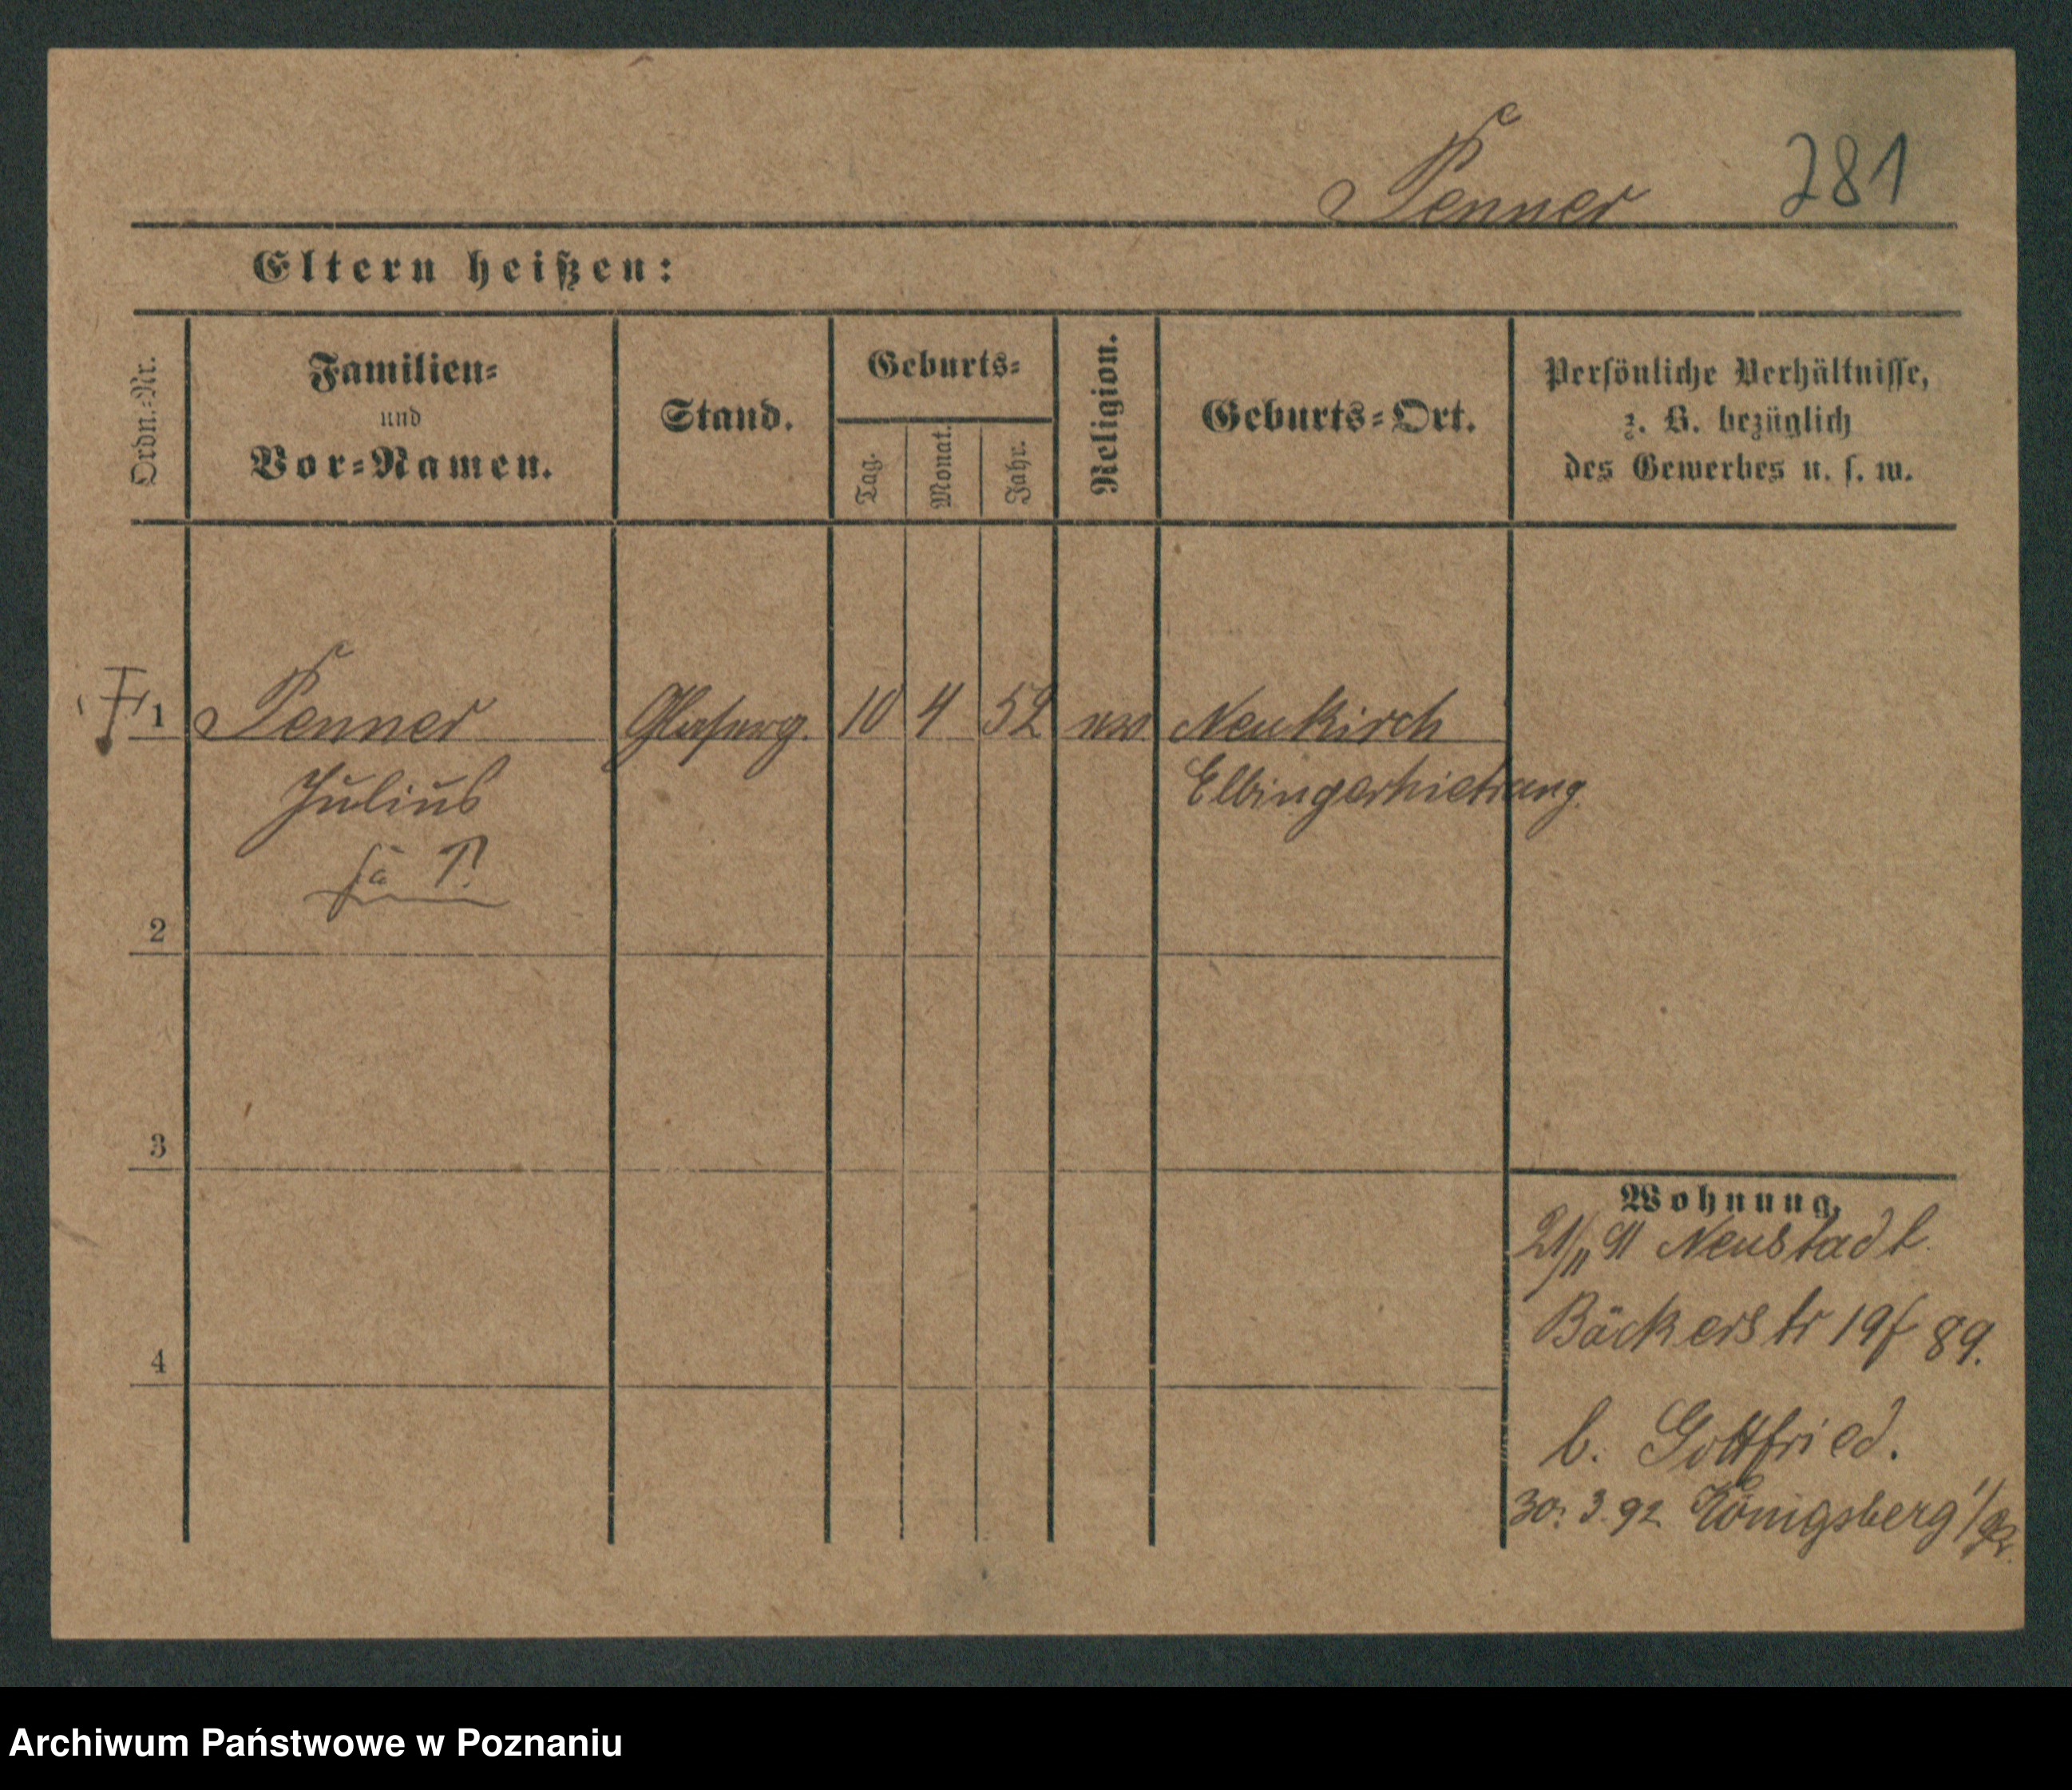 Penner 281
Eltern heißen:
Ordn.-Nr.
Familien-
und
Vor-Namen.
Stand.
Geburts-
Tag.
Monat.
Jahr.
Religion.
Geburts-Ort.
Persönliche Verhältnisse,
z. B. bezüglich
des Gewerbes u. s. w.
1 Penner 10 4 52 Neukirch
Julius
2
3
4
Wohnung.
21/11 91 Neustadt
Bäckerstr 19 89.
b. Gottfried.
30. 3. 92 Königsberg i/Pr.
Archiwum Państwowe w Poznaniu